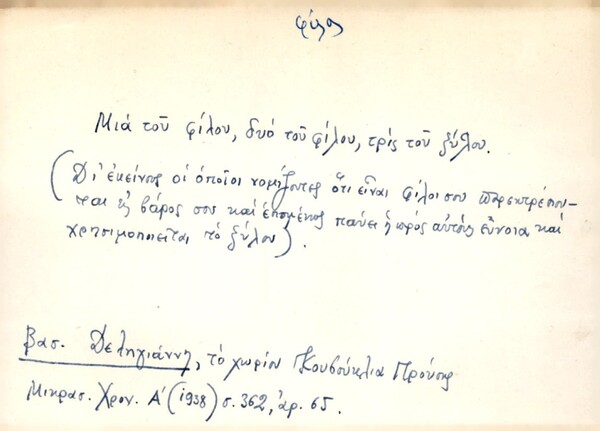 φίλος
Μιά τοῦ φίλου, δυό τοῦ φίλου, τρίς τοῦ ξύλου.
(Δι' ἐκείνους οἱ ὁποῖοι νομίζοντες ὅτι εἶναι φίλοι σου παρεκτρέπον-
ται εἰς βάρος σου καί ἑπομένως παύει ἡ πρός αὐτούς εὔνοια καί
χρησιμοποιεῖται τό ξύλον).
Βασ. Δεληγιάννη, τό χωρίον Κουβούκλια Προύσης
Μικρασ. Χρον. Α' (1938) σ. 362, ἀρ. 65.